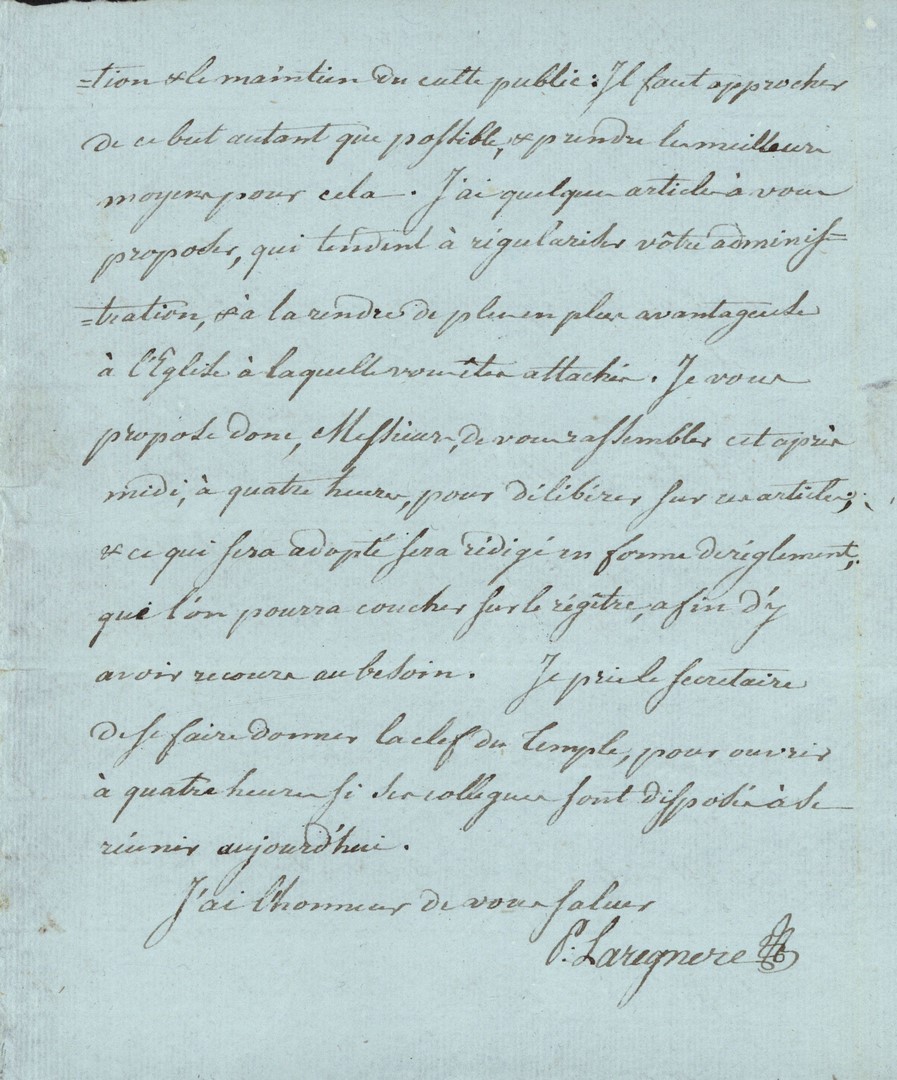 =tion & le maintien du culte public: Il faut approcher
de ce but autant que possible, & prendre les meilleurs
moyens pour cela. J'ai quelques articles à vous
proposer, qui tendent à régulariser vôtre adminis=
=tration, & à la rendre de plus en plus avantageuse
à l'Eglise à laquelle vous êtes attachés. Je vous
propose donc, Messieurs, de vous rassembler cet après
midi, à quatre heures, pour délibérer sur ces articles;
& ce qui sera adopté sera rédigé en forme de réglement,
que l'on pourra coucher sur le régître, afin d'y
avoir recours au besoin. Je prie le secretaire
de se faire donner la clef du Temple, pour ouvrir
à quatre heures si ses collegues sont disposés à se
réunir aujourd'hui.
J'ai l'honneur de vous saluer
P: Laregnere